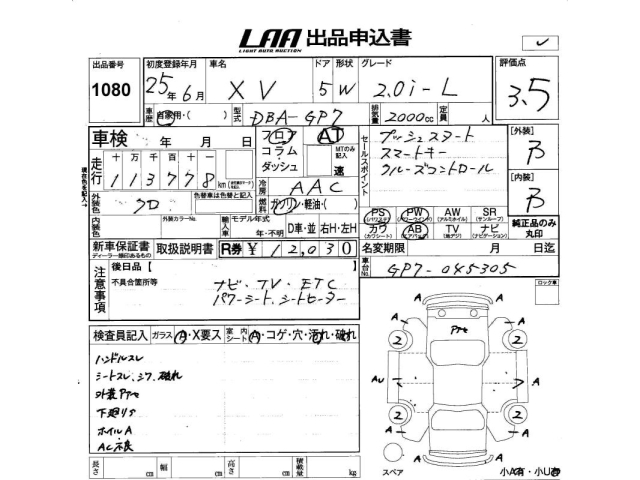 LAA 出品申込書
LIGHT AUTO AUCTION
出品番号 初度登録年月 車名 ドア 形状 グレード 評価点
1080 25年6月 XV 5 W 2.0i-L 3.5
車歴 自家用・( ) 型式 DBA-GP7 排気量 2000cc 定員 人
車検 年 月 日 フロア AT プッシュスタート [外装]
コラム・ダッシュ MTのみ記入 速 セールスポイント スマートキー
走行 十万千百十 113778 km クルーズコントロール [内装]
冷房 AAC
外装色 クロ 色替車は色替と記入 燃料 ガソリン・軽油・( )
PS PW AW SR
(パワステ) (パワーウインド) (アルミホイル) (サンルーフ)
内装色 外装カラーNo. 輸入車 モデル年式 年・不明 D車・並 右H・左H カワ AB TV ナビ 純正品のみ丸印
(カワシート) (エアバッグ) (地アジ) (ナビゲーション)
新車保証書 取扱説明書 R券 ¥12,030 名変期限 月 日迄
ディーラー捺印あるもの
車台No. GP7-045305
注意事項 後日品[
不具合箇所等 ナビ・TV・ETC
パワーシート、シートヒーター
ロック車
検査員記入 ガラス A・X要ス 室内シート A・コゲ・穴・汚れ・破れ
ハンドルスレ
シートスレ、シワ、破れ
外装Pケセ
下廻りサ
ホイルA
AC不良
長さ cm 幅 cm 高さ cm 積載量 kg
A A
A 2 2 A
AU A
A 2 2 A
A A
スペア 小A有・小U有